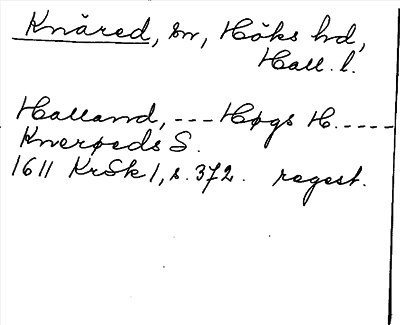 Knäred, sn, Höks hd,
Hall. l.
Halland, --- Høgs H. -----
Knerøeds S.
1611 KrSk 1, s. 372. regest.